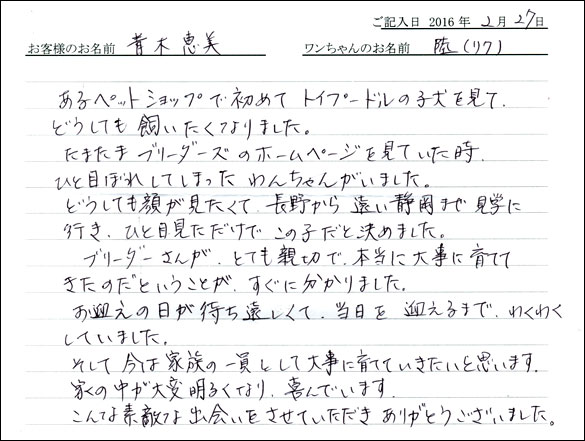 ご記入日 2016 年 2 月 27 日
お客様のお名前 青木 恵美 ワンちゃんのお名前 陸（リク）
あるペットショップで初めて トイプードルの子犬を見て、
どうしても 飼いたくなりました。
たまたま ブリーダーズ のホームページを見ていた時、
ひと目ぼれしてしまった わんちゃんがいました。
どうしても顔が見たくて、長野から 遠い静岡まで 見学に
行き、ひと目見ただけで この子だと決めました。
ブリーダーさんが、とても親切で、本当に大事に育てて
きたのだということが、すぐに分かりました。
お迎えの日が待ち遠しくて、当日を 迎えるまで、わくわく
していました。
そして 今は 家族の一員として大事に育てていきたいと思います。
家の中が大変明るくなり、喜んでいます。
こんな素敵な 出会いをさせていただき ありがとうございました。